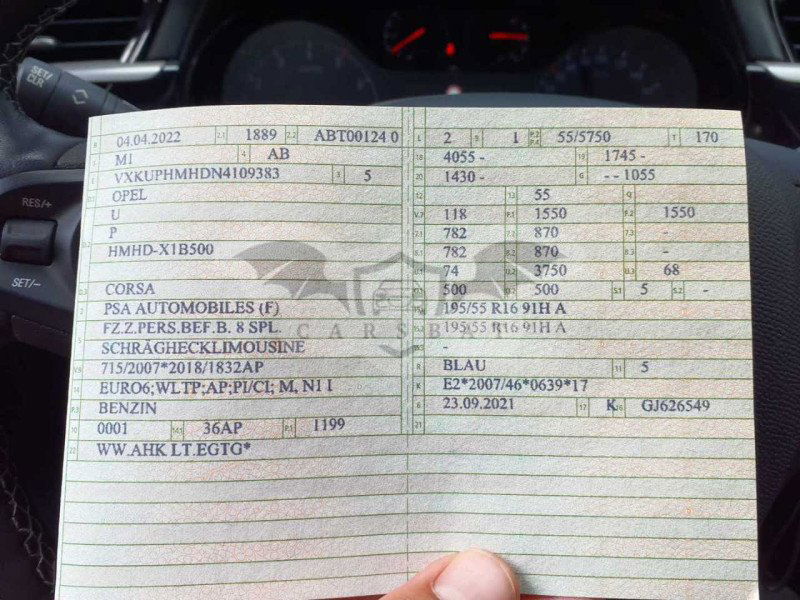 SET/
CLR
RES/+
SET/-
B 04.04.2022 2.1 1889 2.2 ABT00124 0
J M1 4 AB
E VXKUPHMHDN4109383 3 5
D.1 OPEL
U
D.2 P
HMHD-X1B500
D.3 CORSA
2 PSA AUTOMOBILES (F)
FZ.Z.PERS.BEF.B. 8 SPL.
5 SCHRÄGHECKLIMOUSINE
V.9 715/2007*2018/1832AP
14 EURO6;WLTP;AP;PI/CI; M, N1 I
P.3 BENZIN
10 0001 14.1 36AP P.1 1199
22 WW.AHK LT.EGTG*
L 2 9 1 P.2 P.4 55/5750 T 170
18 4055 - 19 1745 -
20 1430 - G - - 1055
12 13 55 Q
V.7 118 F.1 1550 F.2 1550
7.1 782 7.2 870 7.3 -
8.1 782 8.2 870 8.3 -
U.1 74 U.2 3750 U.3 68
O.1 500 O.2 500 S.1 5 S.2 -
15.1 195/55 R16 91H A
15.2 195/55 R16 91H A
15.3 -
R BLAU 11 5
K E2*2007/46*0639*17
6 23.09.2021 17 K 16 GJ626549
21